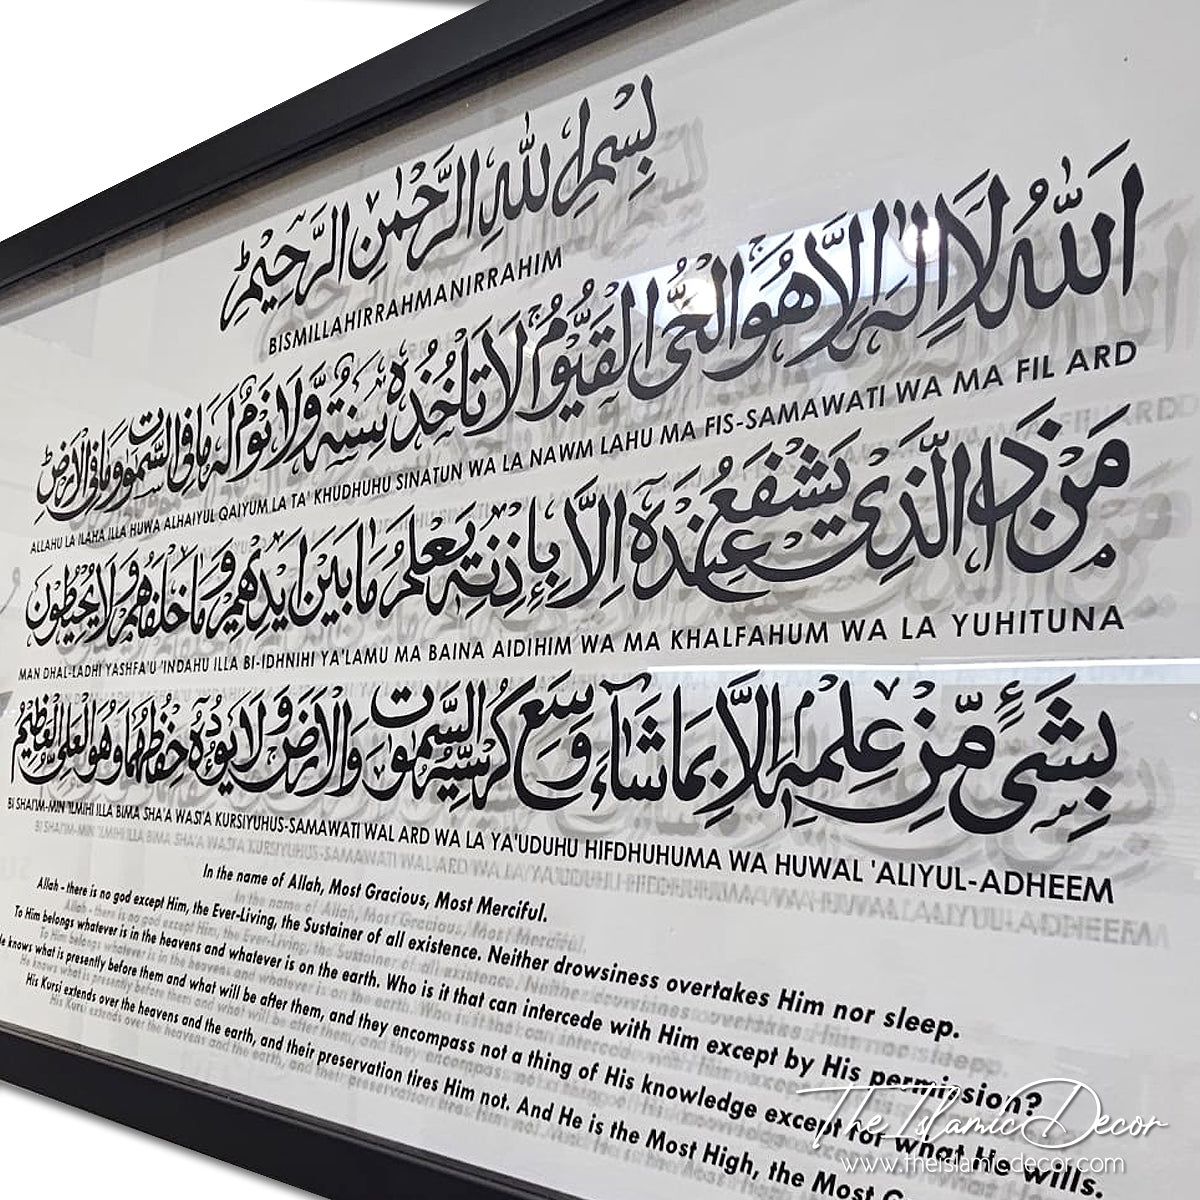 بِسْمِ اللهِ الرَّحْمٰنِ الرَّحِيْمِ
BISMILLAHIRRAHMANIRRAHIM
اَللهُ لَا اِلٰهَ اِلَّا هُوَ الْحَيُّ الْقَيُّوْمُ لَا تَأْخُذُهٗ سِنَةٌ وَّلَا نَوْمٌ لَهٗ مَا فِي السَّمٰوٰتِ وَمَا فِي الْاَرْضِ
ALLAHU LA ILAHA ILLA HUWA ALHAIYUL QAIYUM LA TA' KHUDHUHU SINATUN WA LA NAWM LAHU MA FIS-SAMAWATI WA MA FIL ARD
مَنْ ذَا الَّذِيْ يَشْفَعُ عِنْدَهٗ اِلَّا بِاِذْنِهٖ يَعْلَمُ مَا بَيْنَ اَيْدِيْهِمْ وَمَا خَلْفَهُمْ وَلَا يُحِيْطُوْنَ
MAN DHAL-LADHI YASHFA'U 'INDAHU ILLA BI-IDHNIHI YA'LAMU MA BAINA AIDIHIM WA MA KHALFAHUM WA LA YUHITUNA
بِشَيْءٍ مِّنْ عِلْمِهٖ اِلَّا بِمَا شَآءَ وَسِعَ كُرْسِيُّهُ السَّمٰوٰتِ وَالْاَرْضَ وَلَا يَئُوْدُهٗ حِفْظُهُمَا وَهُوَ الْعَلِيُّ الْعَظِيْمُ
BI SHAI'IM-MIN 'ILMIHI ILLA BIMA SHA'A WASI'A KURSIYUHUS-SAMAWATI WAL ARD WA LA YA'UDUHU HIFDHUHUMA WA HUWAL 'ALIYUL-ADHEEM
In the name of Allah, Most Gracious, Most Merciful.
Allah - there is no god except Him, the Ever-Living, the Sustainer of all existence. Neither drowsiness overtakes Him nor sleep.
To Him belongs whatever is in the heavens and whatever is on the earth. Who is it that can intercede with Him except by His permission?
He knows what is presently before them and what will be after them, and they encompass not a thing of His knowledge except for what He wills.
His Kursi extends over the heavens and the earth, and their preservation tires Him not. And He is the Most High, the Most
The Islamic Decor
www.theislamicdecor.com